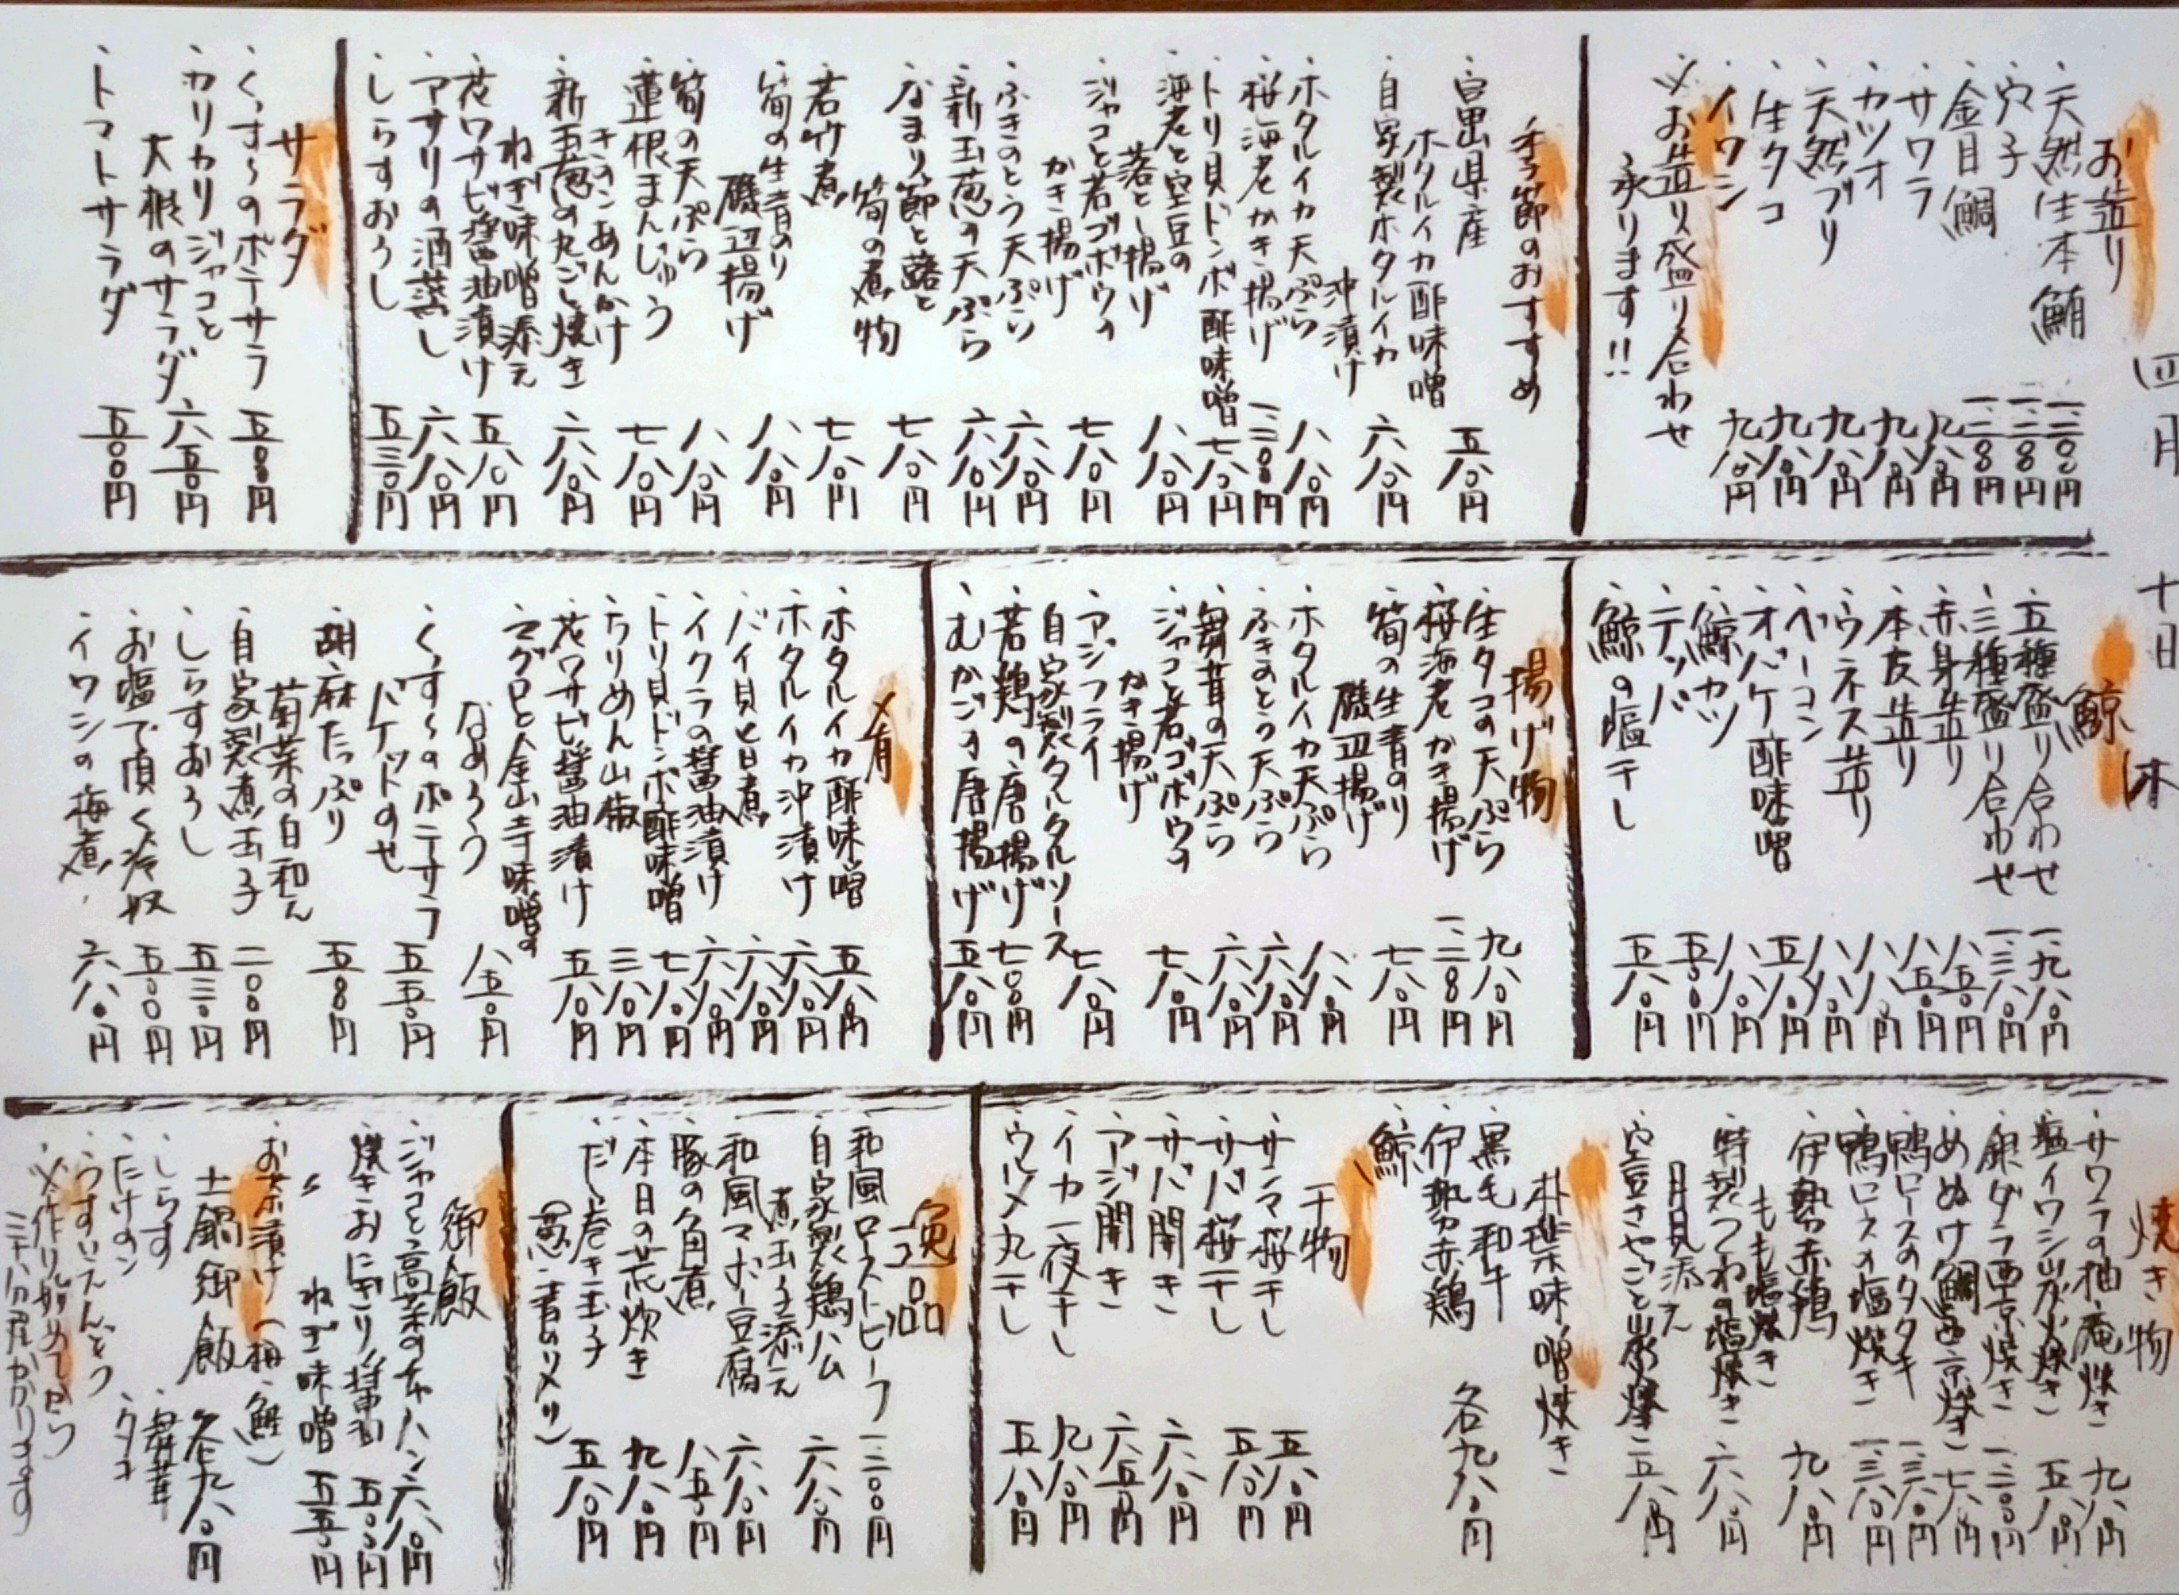 四月十日 木
お造り
・天然生本鮪 一二〇〇円
・穴子 一二八〇円
・金目鯛 一二八〇円
・サワラ 九八〇円
・カツオ 九八〇円
・天然ブリ 九八〇円
・生タコ 九八〇円
・イワシ 九八〇円
※お造り盛り合わせ
承ります!!
季節のおすすめ
・富山県産
ホタルイカ酢味噌 五八〇円
・自家製ホタルイカ
沖漬け 六八〇円
・ホタルイカ天ぷら 八八〇円
・桜海老かき揚げ
・トリ貝ドンボ酢味噌 七八〇円
・海老と空豆の
落とし揚げ 八八〇円
・ジャコと若ゴボウの
かき揚げ 七八〇円
・ふきのとう天ぷら 六八〇円
・新玉葱の天ぷら 六八〇円
・なまり節と蕗と
筍の煮物 七八〇円
・若竹煮 七八〇円
・筍の生青のり
磯辺揚げ 八八〇円
・筍の天ぷら 八八〇円
・蓮根まんじゅう
きのこあんかけ 七八〇円
・新玉葱の丸ごと焼き
ねぎ味噌添え 六八〇円
・花ワサビ醤油漬け 五八〇円
・アサリの酒蒸し 六八〇円
・しらすおろし 五三〇円
サラダ
・くず〜のポテサラ 五五〇円
・カリカリジャコと
大根のサラダ 六五〇円
・トマトサラダ 五〇〇円
鯨
・五種盛り合わせ 一九八〇円
・三種盛り合わせ 一三八〇円
・赤身造り 八五〇円
・本皮造り 八五〇円
・ウネス造り 八八〇円
・ベーコン 八八〇円
・オバケ酢味噌 五八〇円
・鯨カツ 八八〇円
・テッパ 五〇〇円
・鯨の塩干し 五八〇円
揚げ物
・生タコの天ぷら 九八〇円
・桜海老かき揚げ
・筍の生青のり
磯辺揚げ 七八〇円
・ホタルイカ天ぷら 八八〇円
・ふきのとう天ぷら 六八〇円
・舞茸の天ぷら 六八〇円
・ジャコと若ゴボウの
かき揚げ 七八〇円
・アジフライ
自家製タルタルソース 七八〇円
・若鶏の唐揚げ 七〇〇円
・むかごの唐揚げ 五八〇円
肴
・ホタルイカ酢味噌 五八〇円
・ホタルイカ沖漬け 六八〇円
・バイ貝旨煮 六八〇円
・イクラの醤油漬け 六八〇円
・トリ貝ドンボ酢味噌 七八〇円
・ちりめん山椒 三八〇円
・花ワサビ醤油漬け 五八〇円
・マグロと金山寺味噌の
なめろう 八五〇円
・くず〜のポテサラ
バケットのせ 五五〇円
・胡麻たっぷり
菊菜の白和え 五八〇円
・自家製煮玉子 二〇〇円
・しらすおろし 五三〇円
・お塩で頂く冷奴 五〇〇円
・イワシの梅煮 六八〇円
焼き物
・サワラの柚庵焼き 九八〇円
・塩イワシ炭火焼き 五八〇円
・銀ダラ西京焼き 一三〇〇円
・めぬけ鯛西京焼き 七八〇円
・鴨ロースのタタキ 一三八〇円
・鴨ロースの塩焼き 一三八〇円
・伊勢赤鶏
もも塩焼き 九八〇円
・特製つくねの塩焼き
月見添え 六八〇円
・空豆さやごと炭焼き 五八〇円
朴葉味噌焼き
・黒毛和牛
・伊勢赤鶏
・鯨
各九八〇円
干物
・サンマ桜干し 五八〇円
・サバ桜干し 五八〇円
・サバ開き 六八〇円
・アジ開き 六五〇円
・イカ一夜干し 九八〇円
・ウルメ丸干し 五八〇円
逸品
・和風ローストビーフ 一二〇〇円
・自家製鶏ハム
煮玉子添え 六八〇円
・和風マーボー豆腐 六八〇円
・豚の角煮 八五〇円
・本日の花炊き 九八〇円
・だし巻き玉子 五八〇円
(葱・青のり)
御飯
・ジャコと高菜のチャーハン 六八〇円
・焼きおにぎり 醤油 五〇〇円
〃 ねぎ味噌 五五〇円
・お茶漬け(梅・鮭)
土鍋御飯 各九八〇円
・しらす ・舞茸
・たけのこ ・タコ
・うすいえんどう
※作り始めてから
三十分程かかります